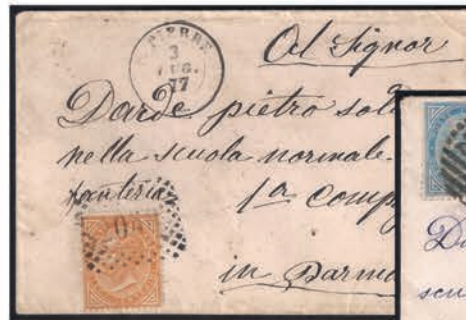 PIERRE
3
AUG.
77
Al Signor
Darde pietro sol
nella scuola normale.
fanteria 1a Comp
in Parma
Da
scu